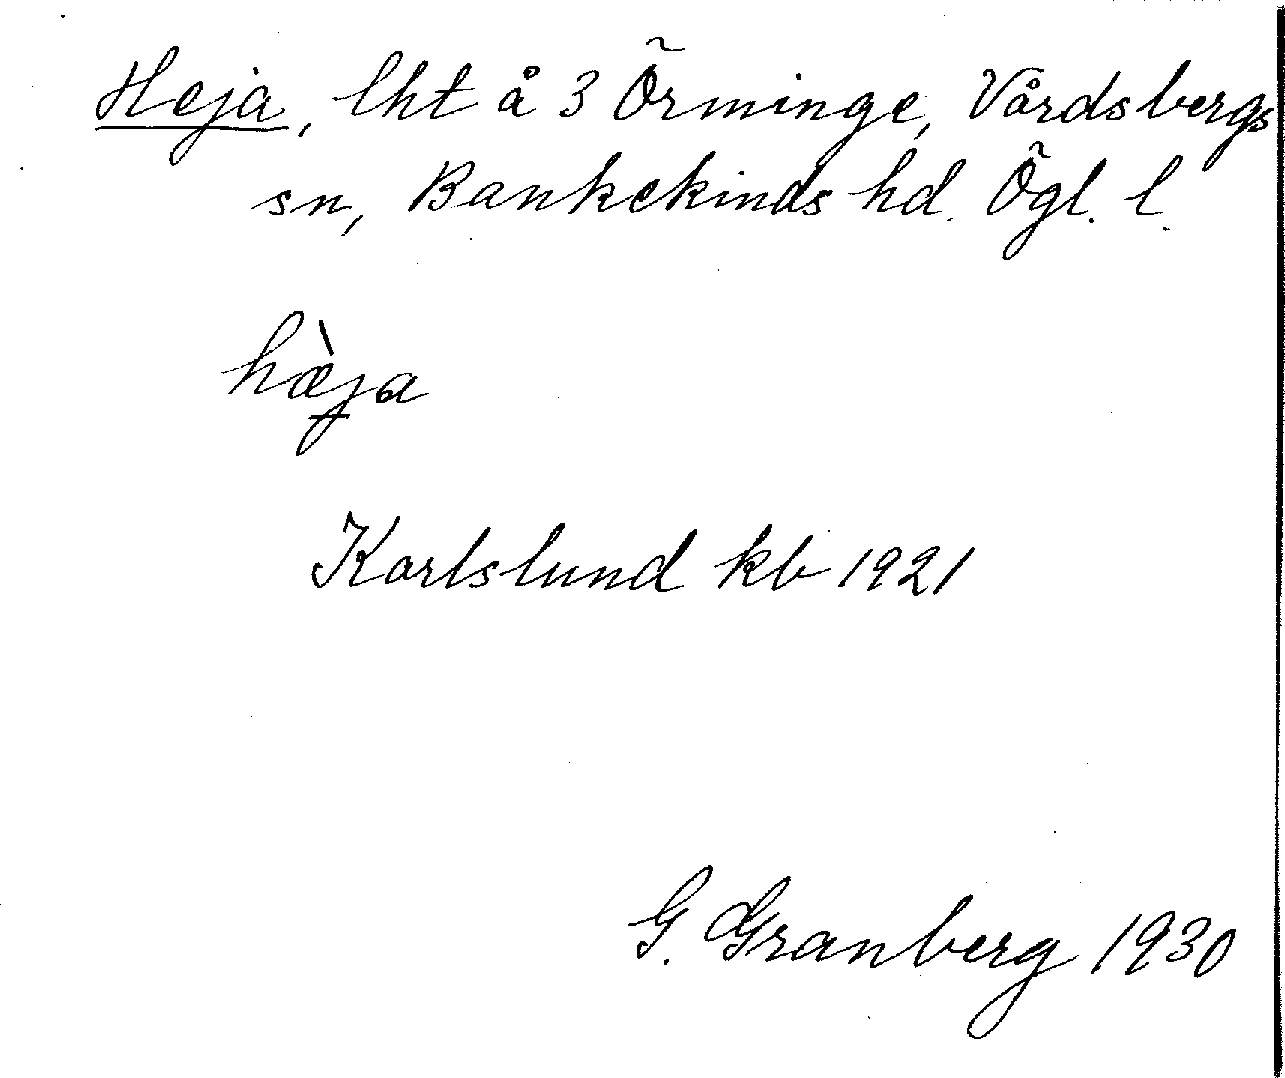 Heja, lht å 3 Örminge, Vårdsbergs
sn, Bankekinds hd. Ögl. l.
hæ̀ja
Karlslund kb 1921
G. Granberg 1930